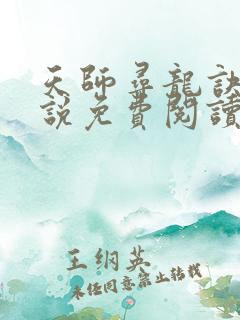 天師尋龍訣
說免費閱讀
王綱英
未任同意禁止转载